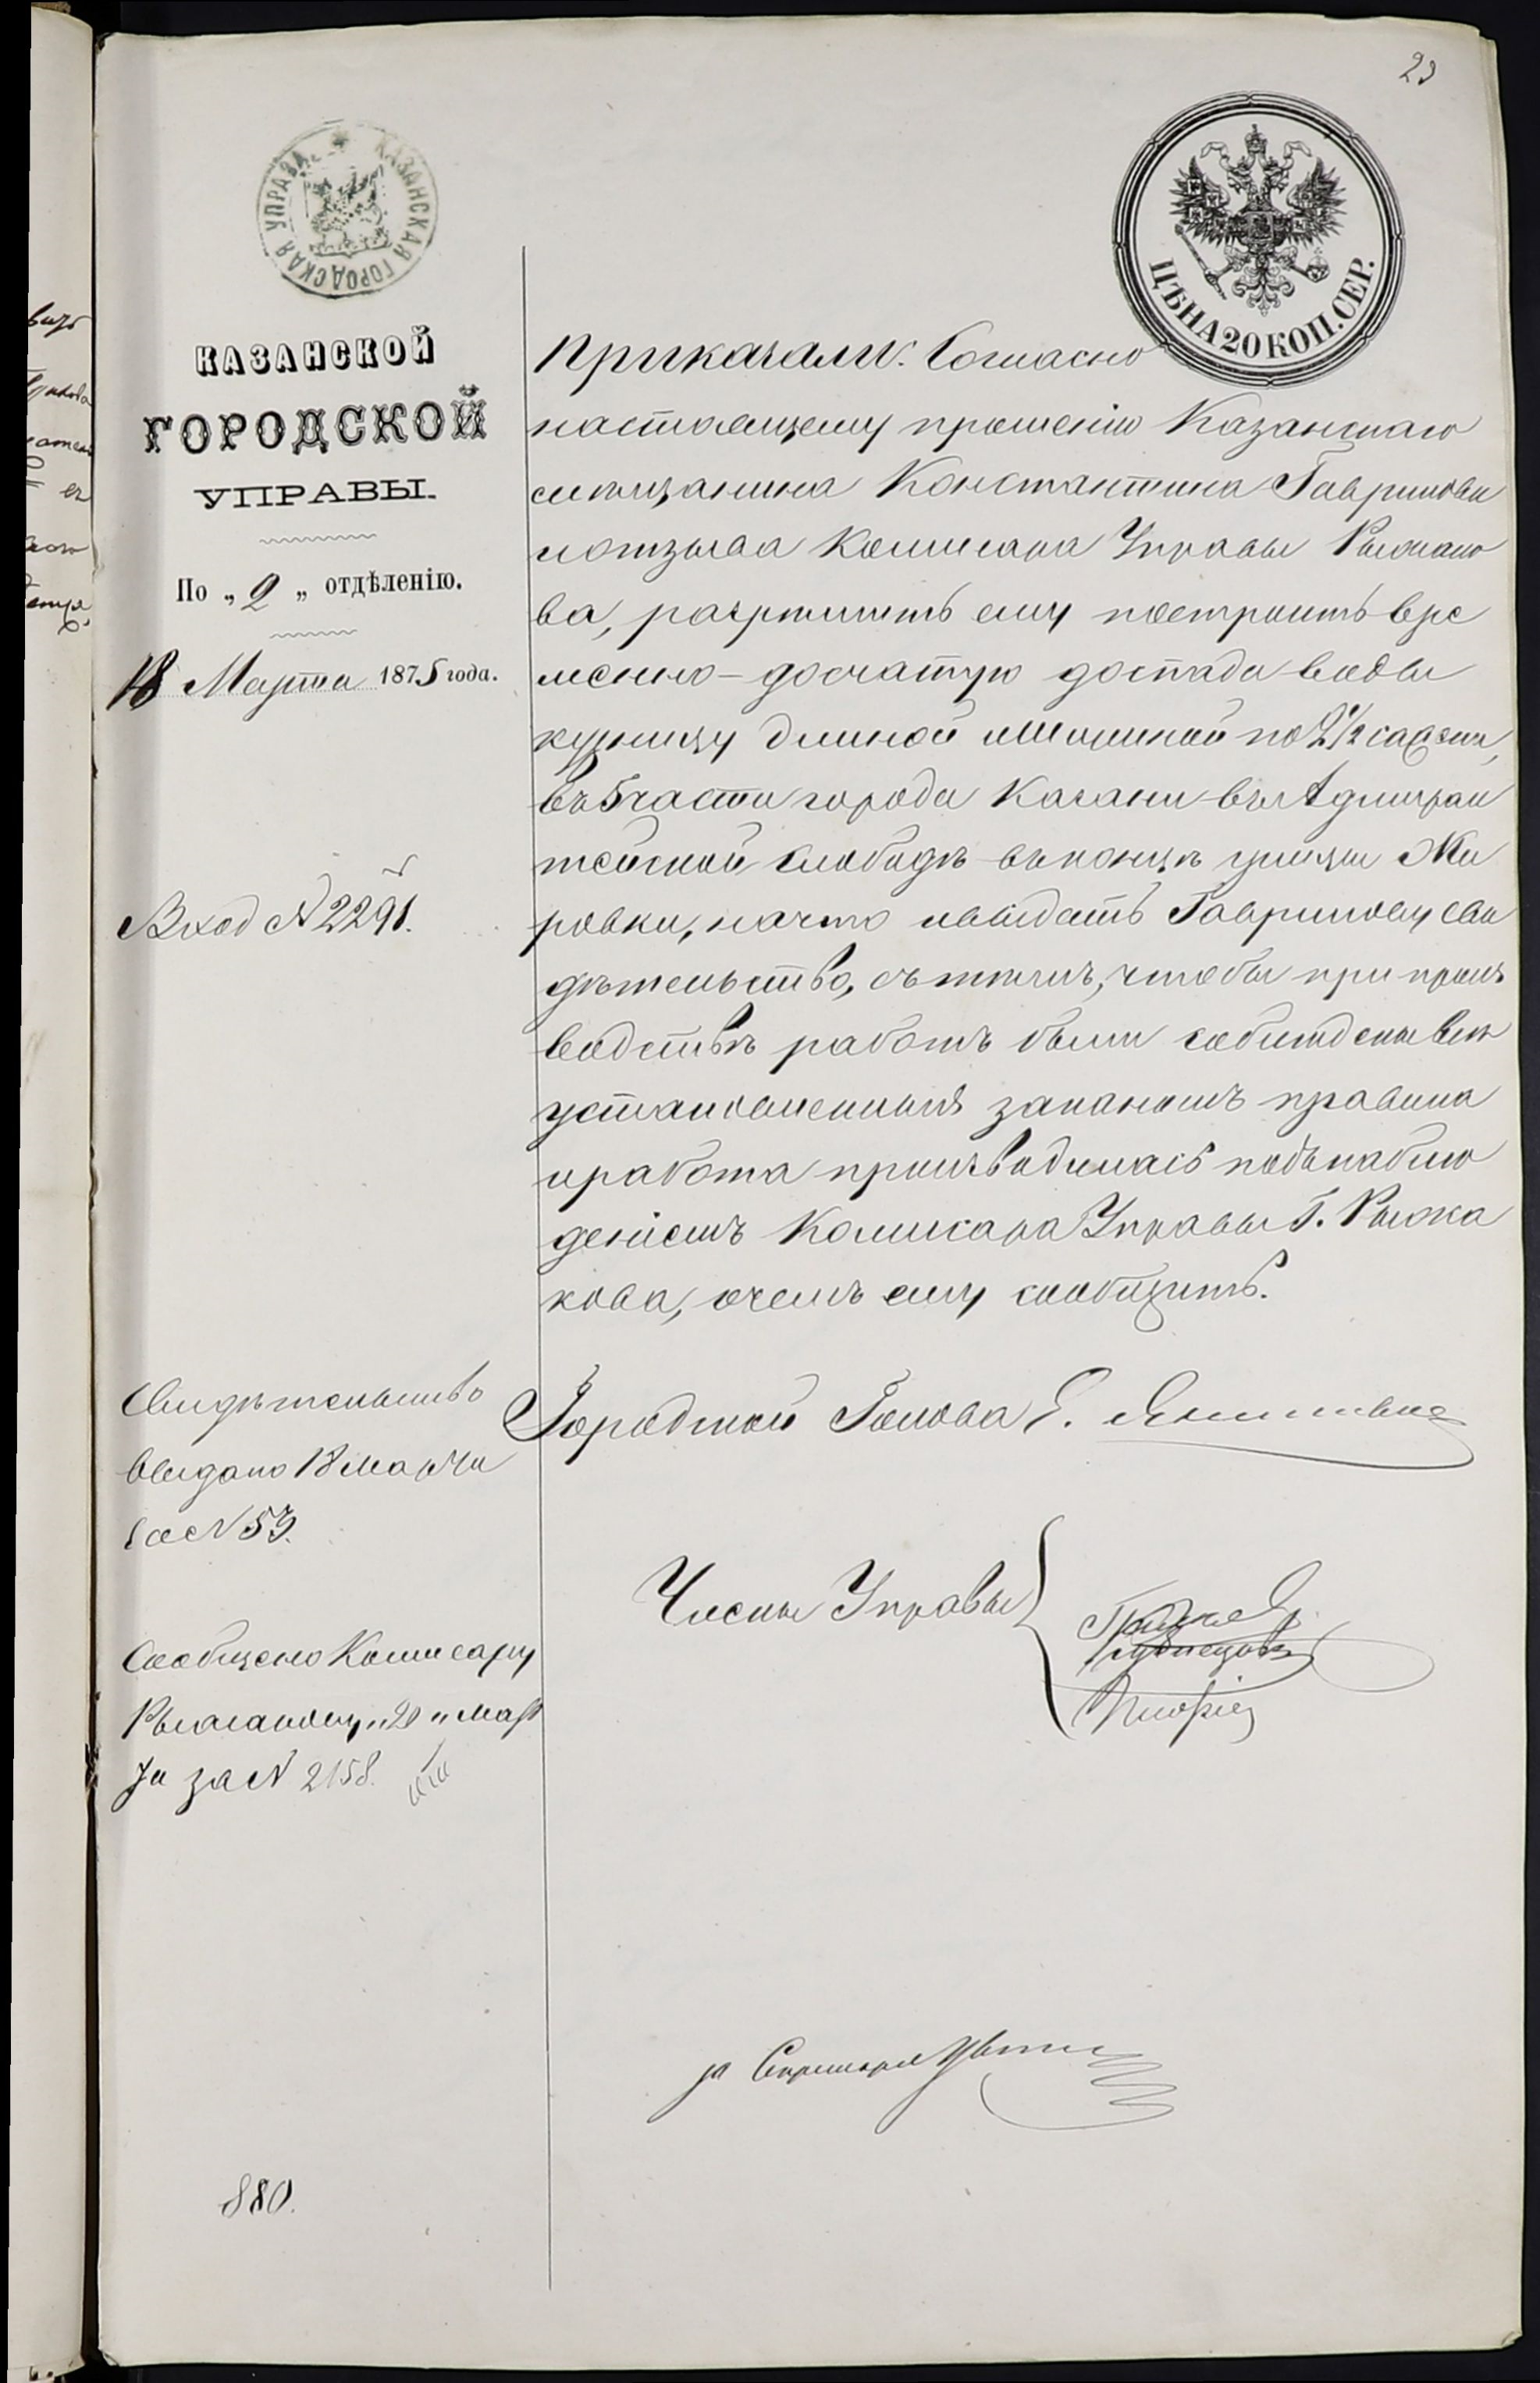 23
КАЗАНСКАЯ ГОРОДСКАЯ УПРАВА
ЦѢНА 20 КОП. СЕР.
КАЗАНСКОЙ
ГОРОДСКОЙ
УПРАВЫ.
По „2„ отдѣленію.
18 Марта 1875 года.
Вход № 2291.
Свидѣтельство
выдано 18 марта
за № 53.
Сообщено Комисару
Рыжакову „20„ мар
та за № 2158.
880.
Приказали: Согласно
настоящему прошенію Казанскаго
мѣщанина Константина Гаврилова
и отзыва Комисара Управы Рыжако
ва, разрѣшить ему построить вре
менно-досчатую для спада воды
кузницу длиной и шириной по 2 1/2 сажени,
въ 5 части города Казани въ Адмирал
тейской Слободѣ в конце улицы
ровки, на что и выдать Гаврилову сви
дѣтельство, съ тѣмъ, чтобы при произ
водствѣ работъ были соблюдены все
установленныя закономъ правила
и работа производилась подъ наблю
деніемъ Комисара Управы Г. Рыжа
кова, о чемъ ему сообщить.
Городской Голова Е.
Члены Управы
за Секретаря